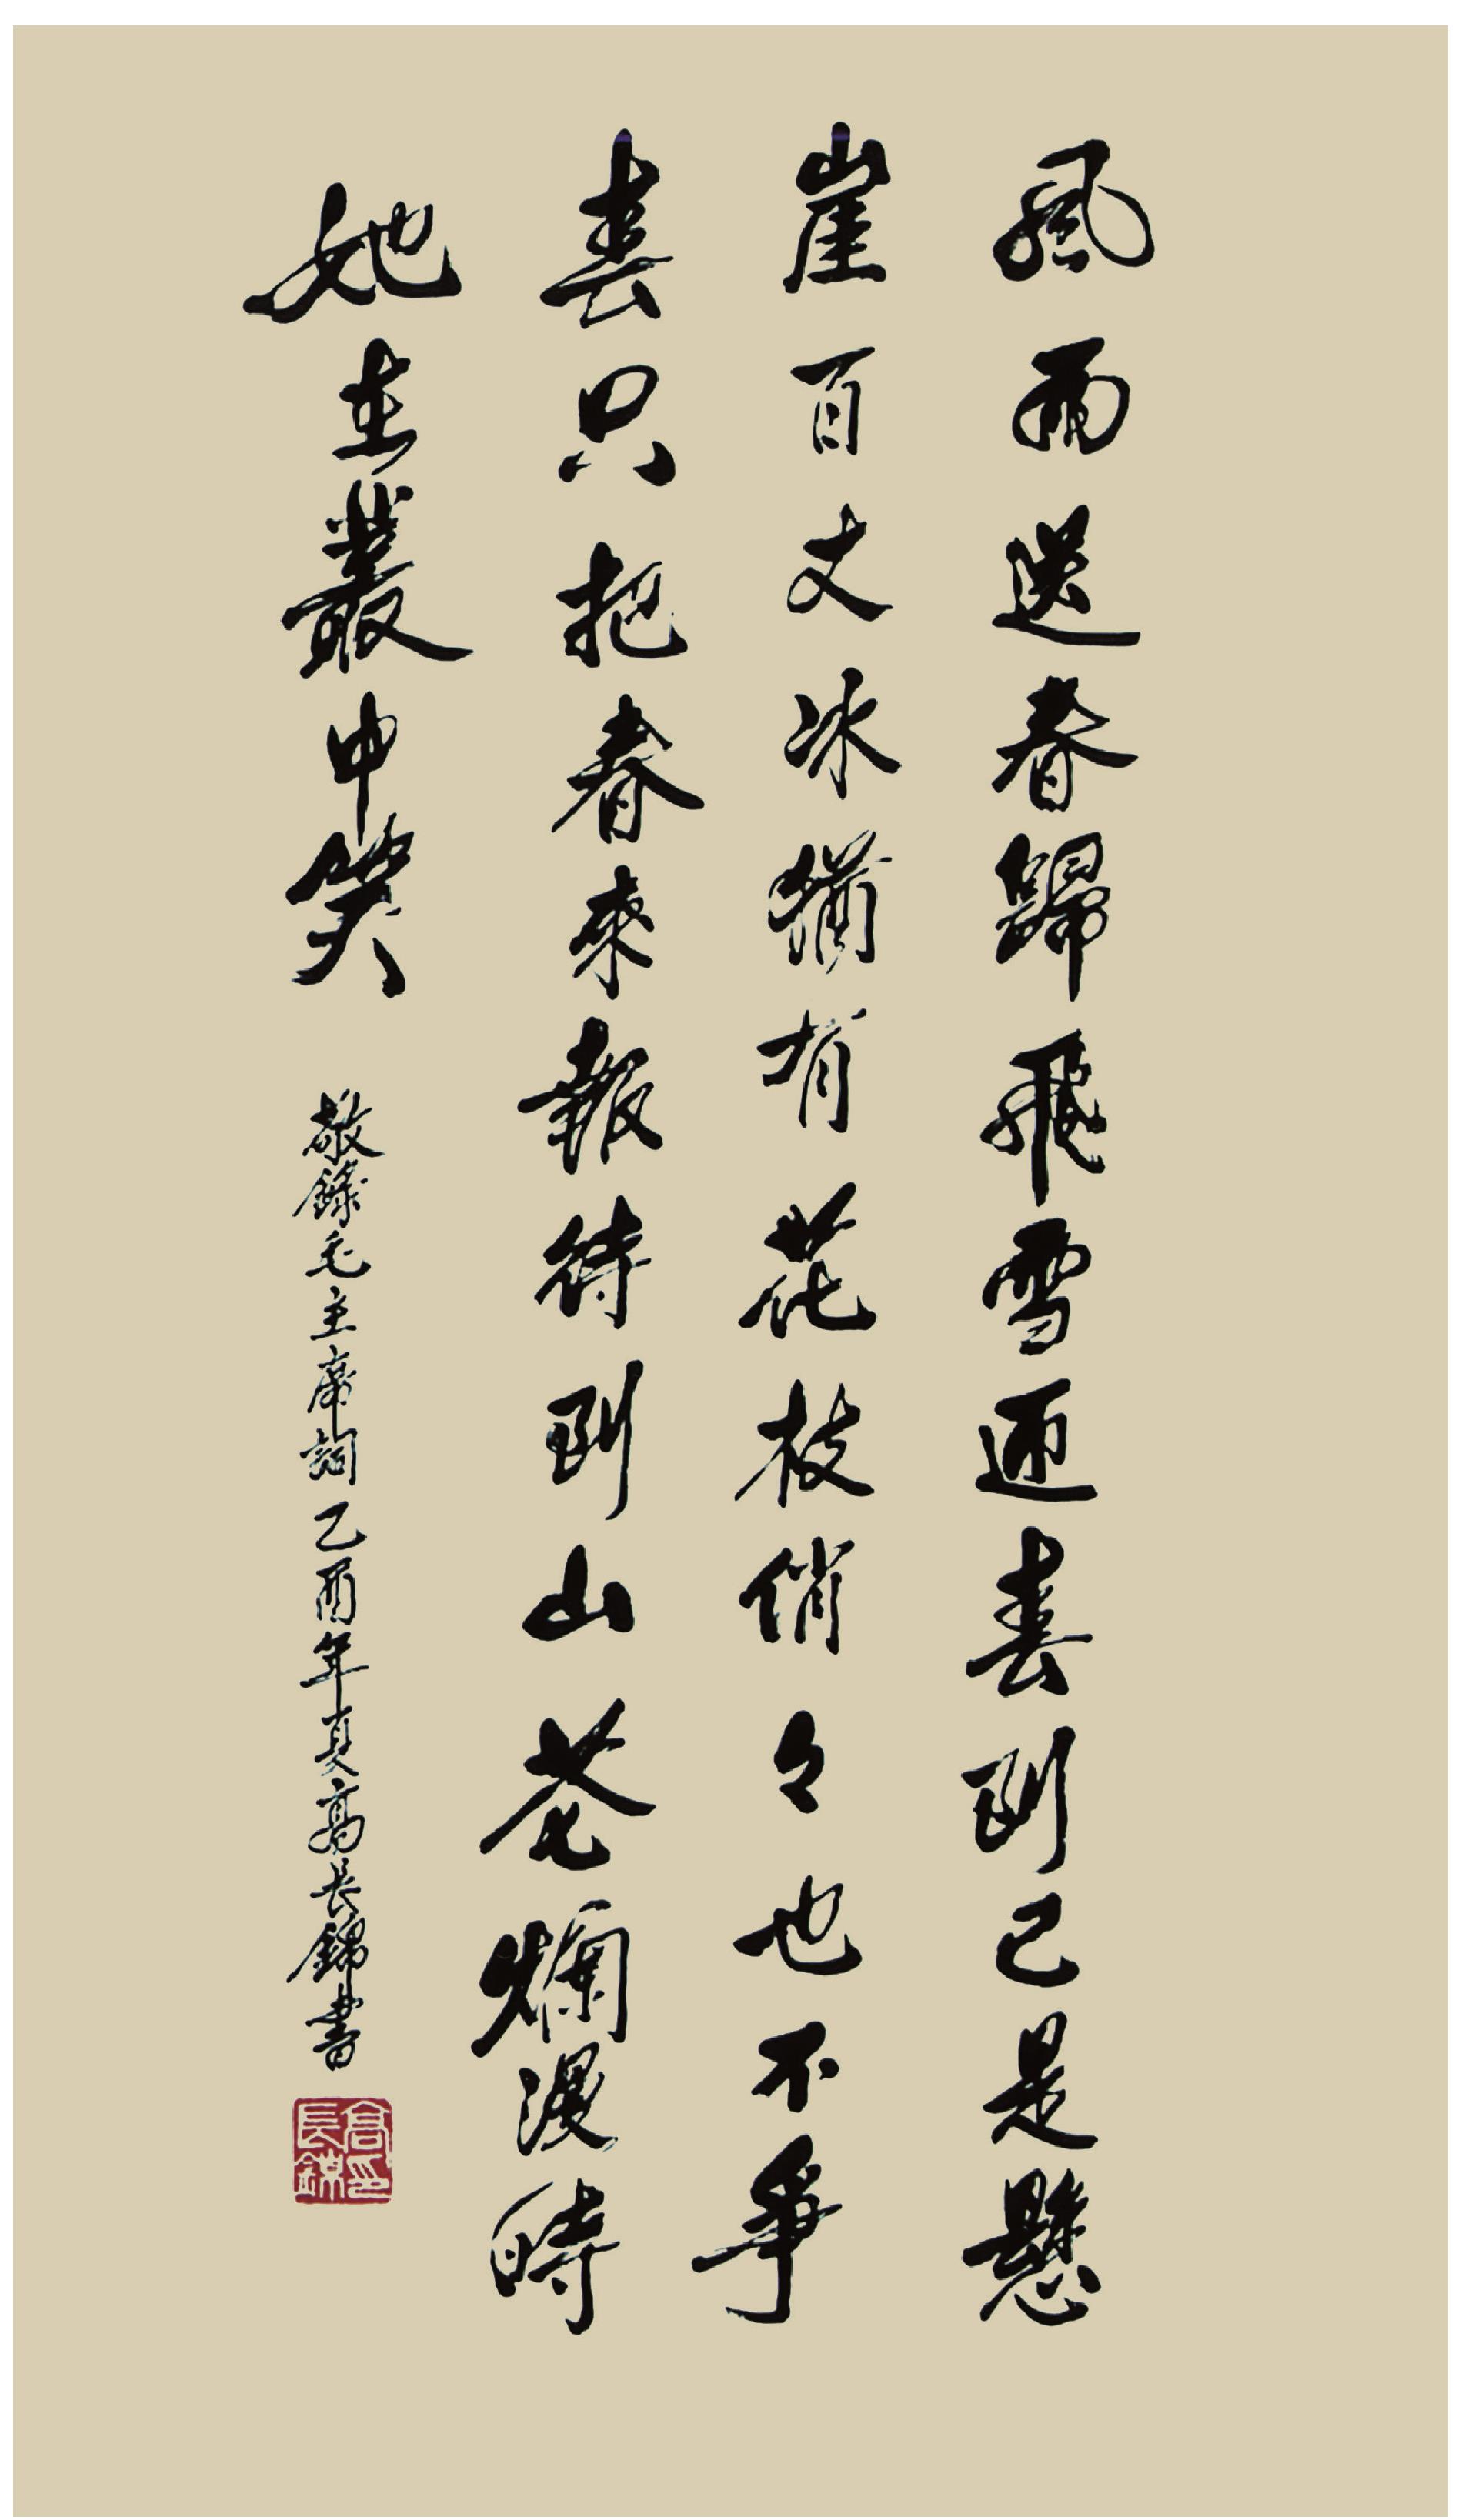 風雨送春歸飛雪迎春到已是懸
崖百丈冰猶有花枝俏俏也不爭
春只把春來報待到山花爛漫時
她在叢中笑
敬錄毛主席詞乙酉年夏高長錦書
高長錦印